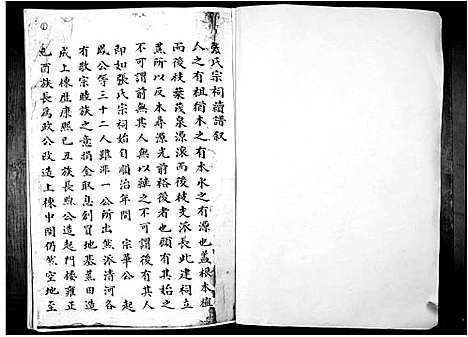 張氏宗祠續譜叙
人之有祖猶木之有本水之有源也蓋根本植
而後枝葉茂泉源滾而後枝支派長此建祠立
蕉所以反本尋源光前裕後者也顧有其始之
不可謂前無其人無以繼之不可謂後有其人
即如張氏宗祠始自順治年間 宗華公 起
公等三十二人雖非一公所出然派清河各
有敬宗睦族之意捐金取息創買地基蕉田造
成上棟歴康熙己丑族長公造起門倭雍正
己酉族長為政公改造上棟中間仍然空地至